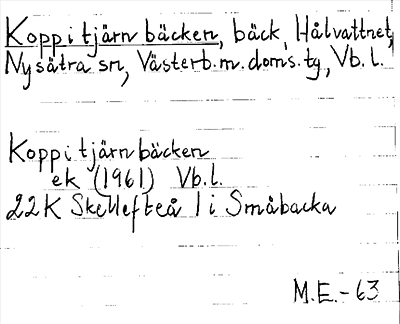 Koppitjärnbäcken, bäck, Hålvattnet,
Nysätra sn, Västerb.m.doms.tg, Vb.l.
Koppitjärnbäcken
ek (1961) Vb.l.
22K Skellefteå 1 i Småbacka
M.E.-63